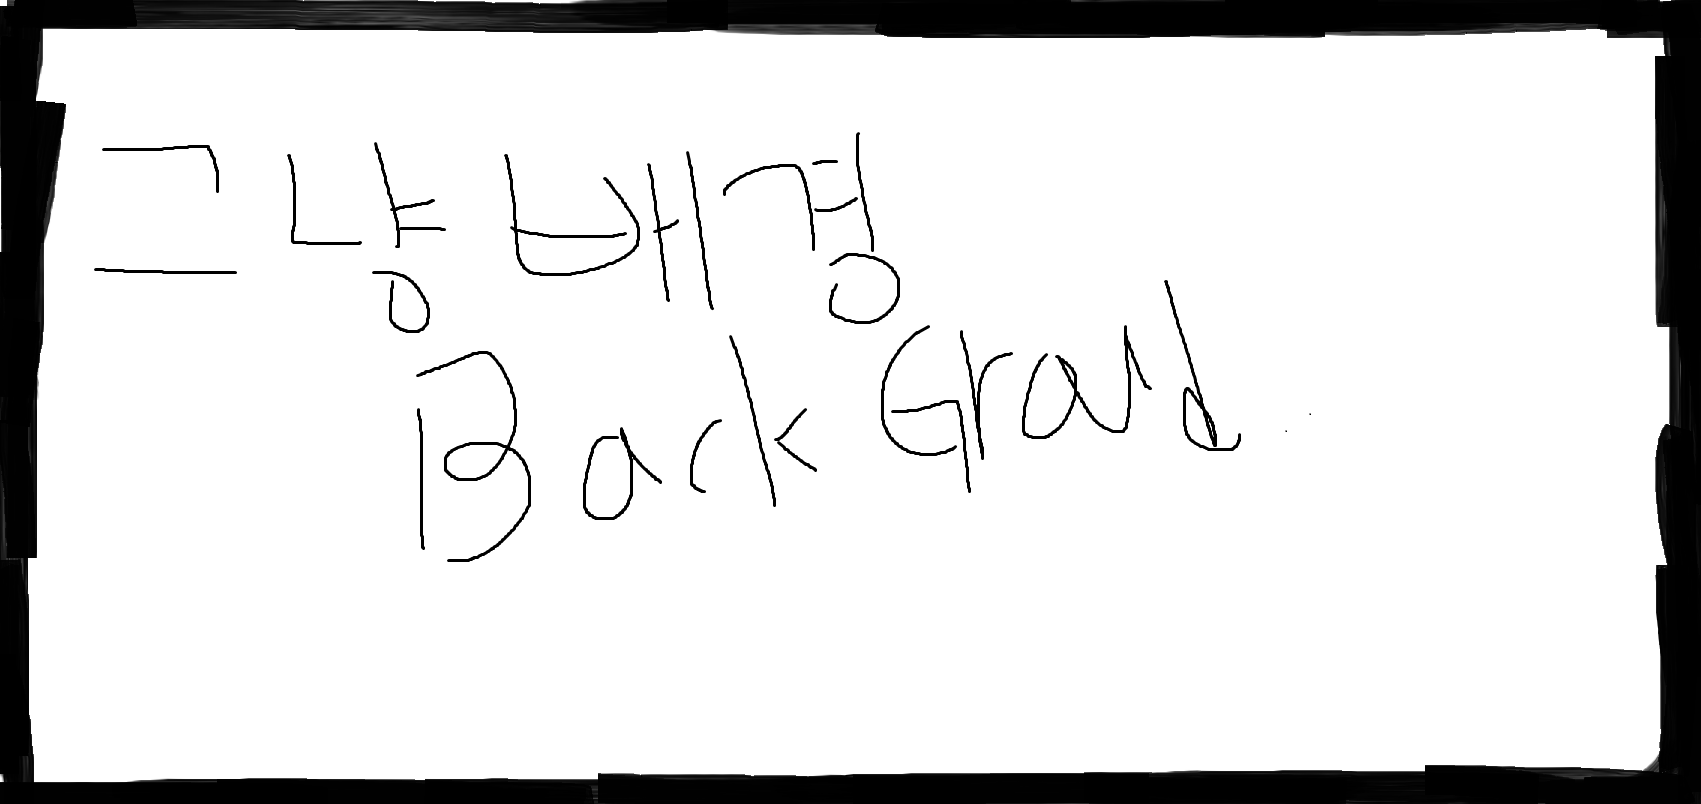 그냥 배경
Back Graud